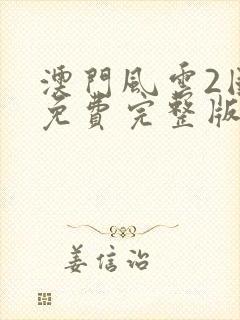 澳門風雲2
免費完整版
姜信诒